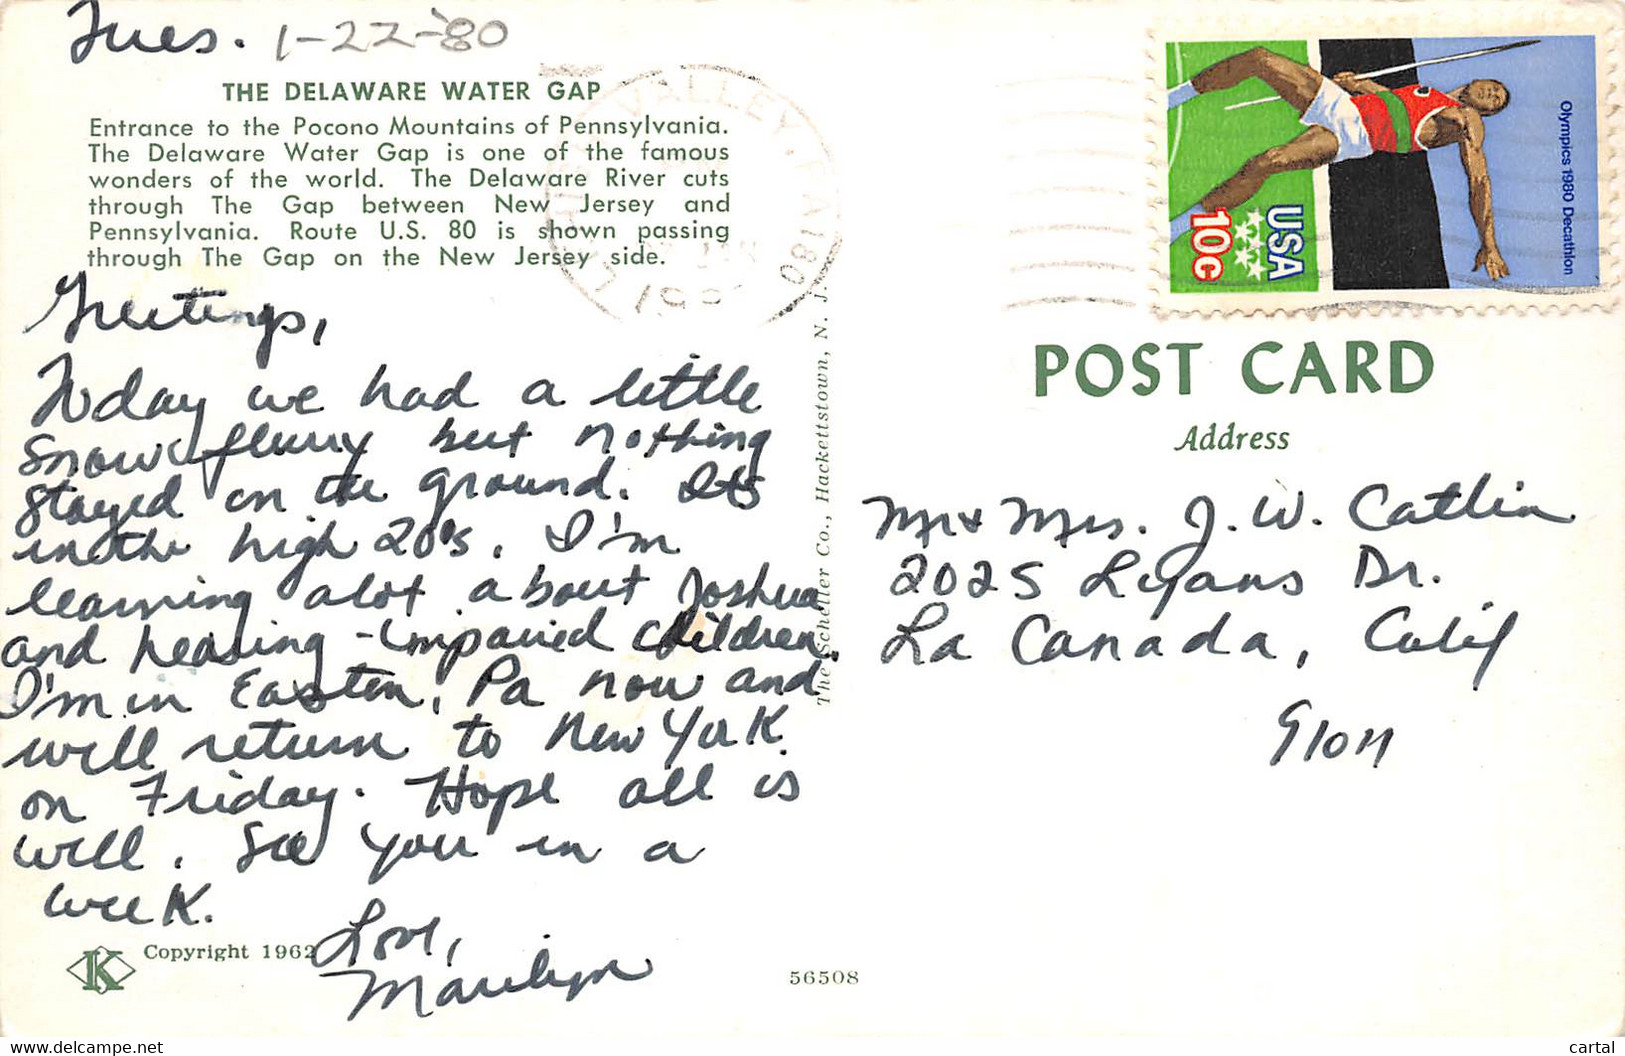 Tues. 1-22-'80
THE DELAWARE WATER GAP
Entrance to the Pocono Mountains of Pennsylvania.
The Delaware Water Gap is one of the famous
wonders of the world. The Delaware River cuts
through The Gap between New Jersey and
Pennsylvania. Route U.S. 80 is shown passing
through The Gap on the New Jersey side.
Greetings,
Today we had a little
snow flurry but nothing
stayed on the ground. Its
in the high 20's. I'm
learning alot about Joshua
and hearing-impaired children.
I'm in Easton, Pa now and
will return to New York
on Friday. Hope all is
well. See you in a
week.
Love,
Marilyn
Copyright 1962
K
56508
The Scheller Co., Hackettstown, N. J.
VALLEY, PA 180
Olympics 1980 Decathlon
USA
10c
POST CARD
Address
Mr & Mrs. J. W. Catlin
2025 Lyans Dr.
La Canada, Calif
91011
www.delcampe.net
cartal